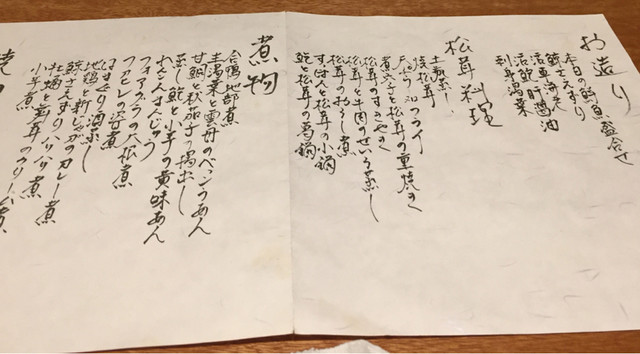 お造り
本日の鮮魚盛合せ
鯨さえずり
活車海老
活鮑肝醤油
刺身湯葉
松茸料理
土瓶蒸し
焼松茸
天ぷら フライ
煮穴子と松茸の重焼き
松茸のすきやき
松茸と牛肉のせいろ蒸し
松茸のおろし煮
すっぽんと松茸の小鍋
鮑と松茸の鍋
煮物
合鴨治部煮
生湯葉と雲丹のべっこうあん
甘鯛と秋茄子の揚出し
蒸し鮑と小芋の黄味あん
れんこんまんじゅう
フォアグラの大根煮
フカヒレの姿煮
はまぐり酒蒸し
地鶏と新じゃがのカレー煮
鯨さえずりハリハリ煮
牡蠣と
小芋煮